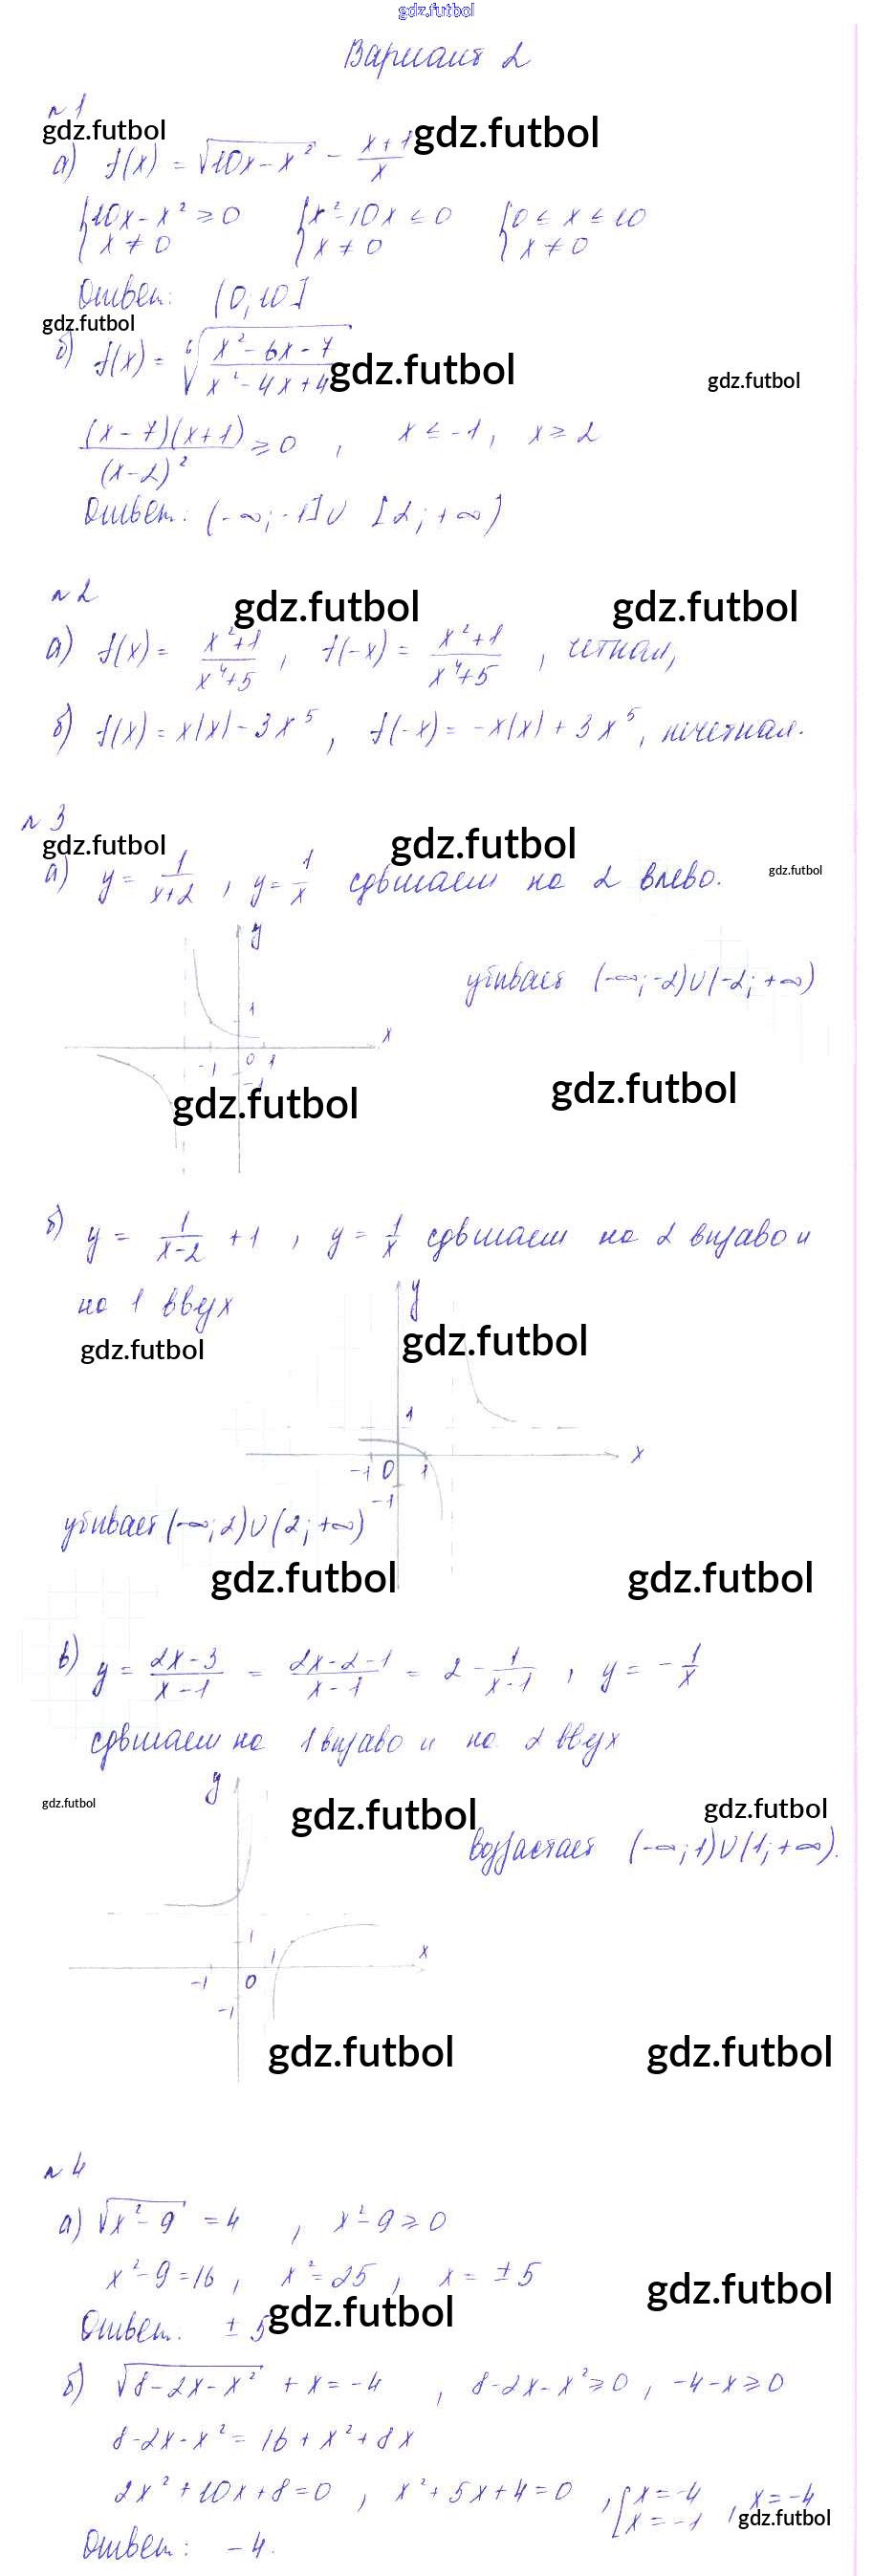 gdz.futbol
Вариант 2
№1
gdz.futbol gdz.futbol
а) f(x) = √(10x - x²) - (x+1)/x
{10x - x² ≥ 0 {x² - 10x ≤ 0 {0 ≤ x ≤ 10
{x ≠ 0 {x ≠ 0 {x ≠ 0
Ответ: (0; 10]
gdz.futbol
б) f(x) = ⁶√((x² - 6x - 7)/(x² - 4x + 4)) gdz.futbol gdz.futbol
(x - 7)(x + 1)/(x - 2)² ≥ 0 , x ≤ -1, x ≥ 2
Ответ: (-∞; -1] ∪ [2; +∞)
№2
gdz.futbol gdz.futbol
а) f(x) = (x²+1)/(x⁴+5) , f(-x) = (x²+1)/(x⁴+5) , четная,
б) f(x) = x|x| - 3x⁵ , f(-x) = -x|x| + 3x⁵, нечетная.
№3
gdz.futbol gdz.futbol gdz.futbol
а) y = 1/(x+2) , y = 1/x сдвигаем на 2 влево.
y
убывает (-∞; -2) ∪ (-2; +∞)
1
x
-1 0 1
-1
gdz.futbol gdz.futbol
б) y = 1/(x-2) + 1 , y = 1/x сдвигаем на 2 вправо и
на 1 вверх
y
gdz.futbol gdz.futbol
1
x
-1 0 1
-1
убывает (-∞; 2) ∪ (2; +∞)
gdz.futbol gdz.futbol
в) y = (2x-3)/(x-1) = (2x-2-1)/(x-1) = 2 - 1/(x-1) , y = -1/x
сдвигаем на 1 вправо и на 2 вверх
y
gdz.futbol gdz.futbol gdz.futbol
возрастает (-∞; 1) ∪ (1; +∞).
1
1 x
-1 0
-1
gdz.futbol gdz.futbol
№4
а) √(x² - 9) = 4 , x² - 9 ≥ 0
x² - 9 = 16 , x² = 25 , x = ±5
gdz.futbol
Ответ: ±5 gdz.futbol
б) √(8 - 2x - x²) + x = -4 , 8 - 2x - x² ≥ 0 , -4 - x ≥ 0
8 - 2x - x² = 16 + x² + 8x
2x² + 10x + 8 = 0 , x² + 5x + 4 = 0 , [x = -4 [x = -1 , x = -4
gdz.futbol
Ответ: -4.